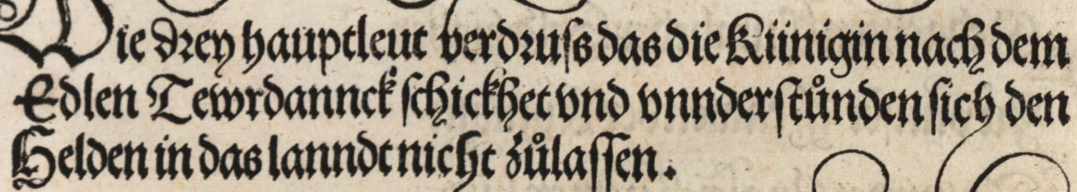 Wie drey hauptleut verdruſs das die Küinigin nach dem
Edlen Tewrdannck ſchickhet vnd vnnderſtůnden ſich den
Helden in das lanndt nicht zůlaſſen.